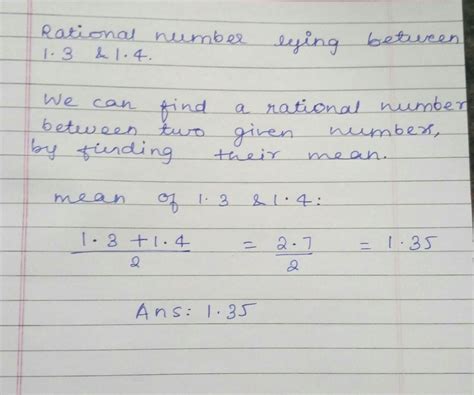 Rational number lying between
1.3 & 1.4.
We can find a rational number
between two given numbers,
by finding their mean.
mean of 1.3 & 1.4:
1.3 + 1.4 / 2 = 2.7 / 2 = 1.35
Ans: 1.35